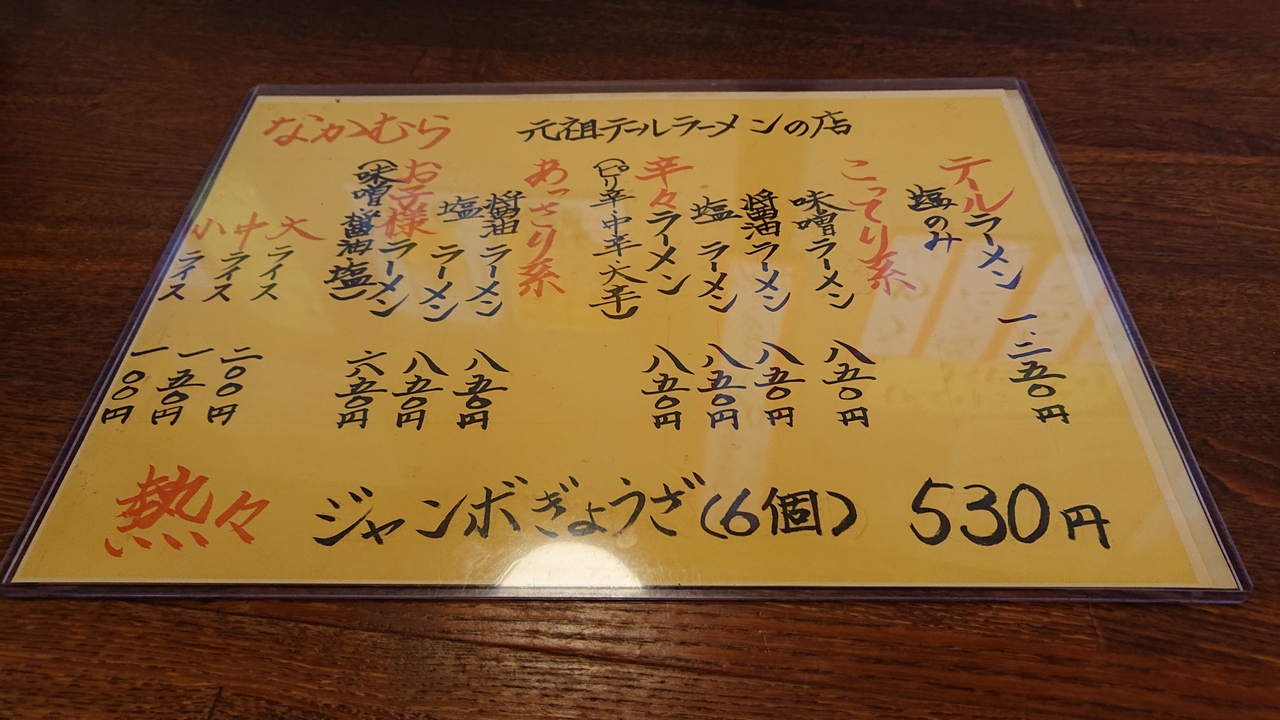 なかむら 元祖テールラーメンの店
テールラーメン 一、二五〇円
塩のみ
こってり系
味噌ラーメン 八五〇円
醤油ラーメン 八五〇円
塩ラーメン 八五〇円
辛々ラーメン 八五〇円
(ピリ辛中辛大辛)
あっさり系
醤油ラーメン 八五〇円
塩ラーメン 八五〇円
お子様ラーメン 六五〇円
(味噌醤油塩)
大ライス 二〇〇円
中ライス 一五〇円
小ライス 一〇〇円
熱々 ジャンボぎょうざ(6個) 530円